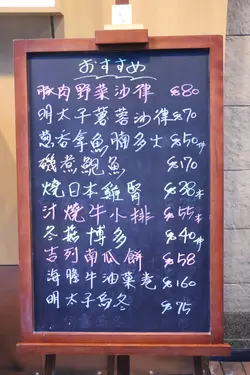 おすすめ
豚肉野菜沙律 $80
明太子薯蓉沙律 $70
蔥香拿魚腩多士 $50/件
磯煮鮑魚 $170
燒日本雞腎 $38/本
汁燒牛小排 $55/本
冬菇博多 $40/件
吉列南瓜餅 $58
海膽牛油菜卷 $160
明太子烏冬 $75